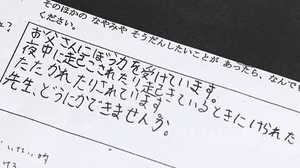 そのほかの なやみや そうだんしたいことが あったら、なんでも
ください。
お父さんにぼう力を受けています。
夜中に起こされたり起きているときにけられたり
たたかれたりされています。
先生、どうにかできませんか。